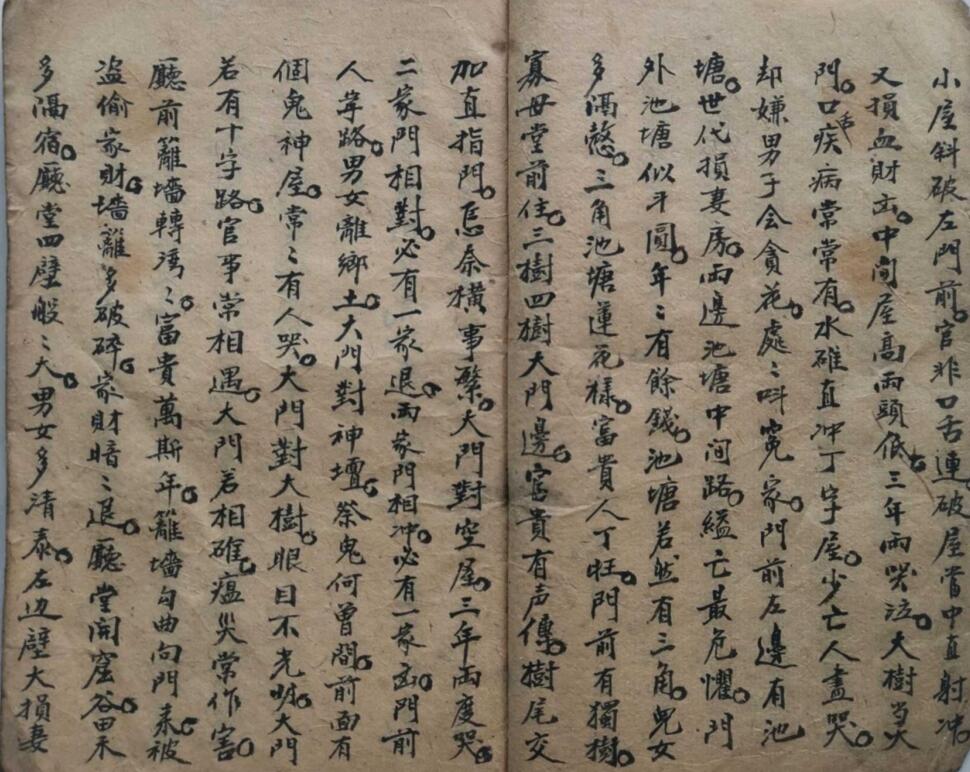 小屋斜破左門前。官非口舌連。破屋當中直射冲。
又損血財出。中间屋高兩頭低。三年兩哭泣。大樹当大
門。口疾病常常有。水碓直冲丁字屋。少亡人盡哭。
却嫌男子会貪花。處〻呌寃家。門前左邊有池
塘。世代損妻房。兩邊池塘中间路。縊亡最危懼。門
外池塘似斗圓。年〻有餘錢。池塘若然有三角。兒女
多隔愸。三角池塘蓮花樣。富貴人丁旺。門前有獨樹。
寡母堂前住。三樹四樹大門邊。富貴有声傳。樹尾交
加直指門。忌奈橫事繁。大門對空屋。三年兩度哭。
二家門相對。必有一家退。兩家門相冲。必有一家凶。門前
人字路。男女離鄉土。大門對神壇。祭鬼何曾間。前面有
個鬼神屋。常〻有人哭。大門對大樹。眼目不光明。大門
若有十字路。官事常相遇。大門若相碓。瘟災常作害。
廳前籬墻轉湾〻。富貴萬斯年。籬墻勾曲向門来。被
盗偷家財。墻籬多破碎。家財暗〻退。廳堂開窟谷。田禾
多隔宿。廳堂四壁般〻大。男女多清泰。左边壁大損妻